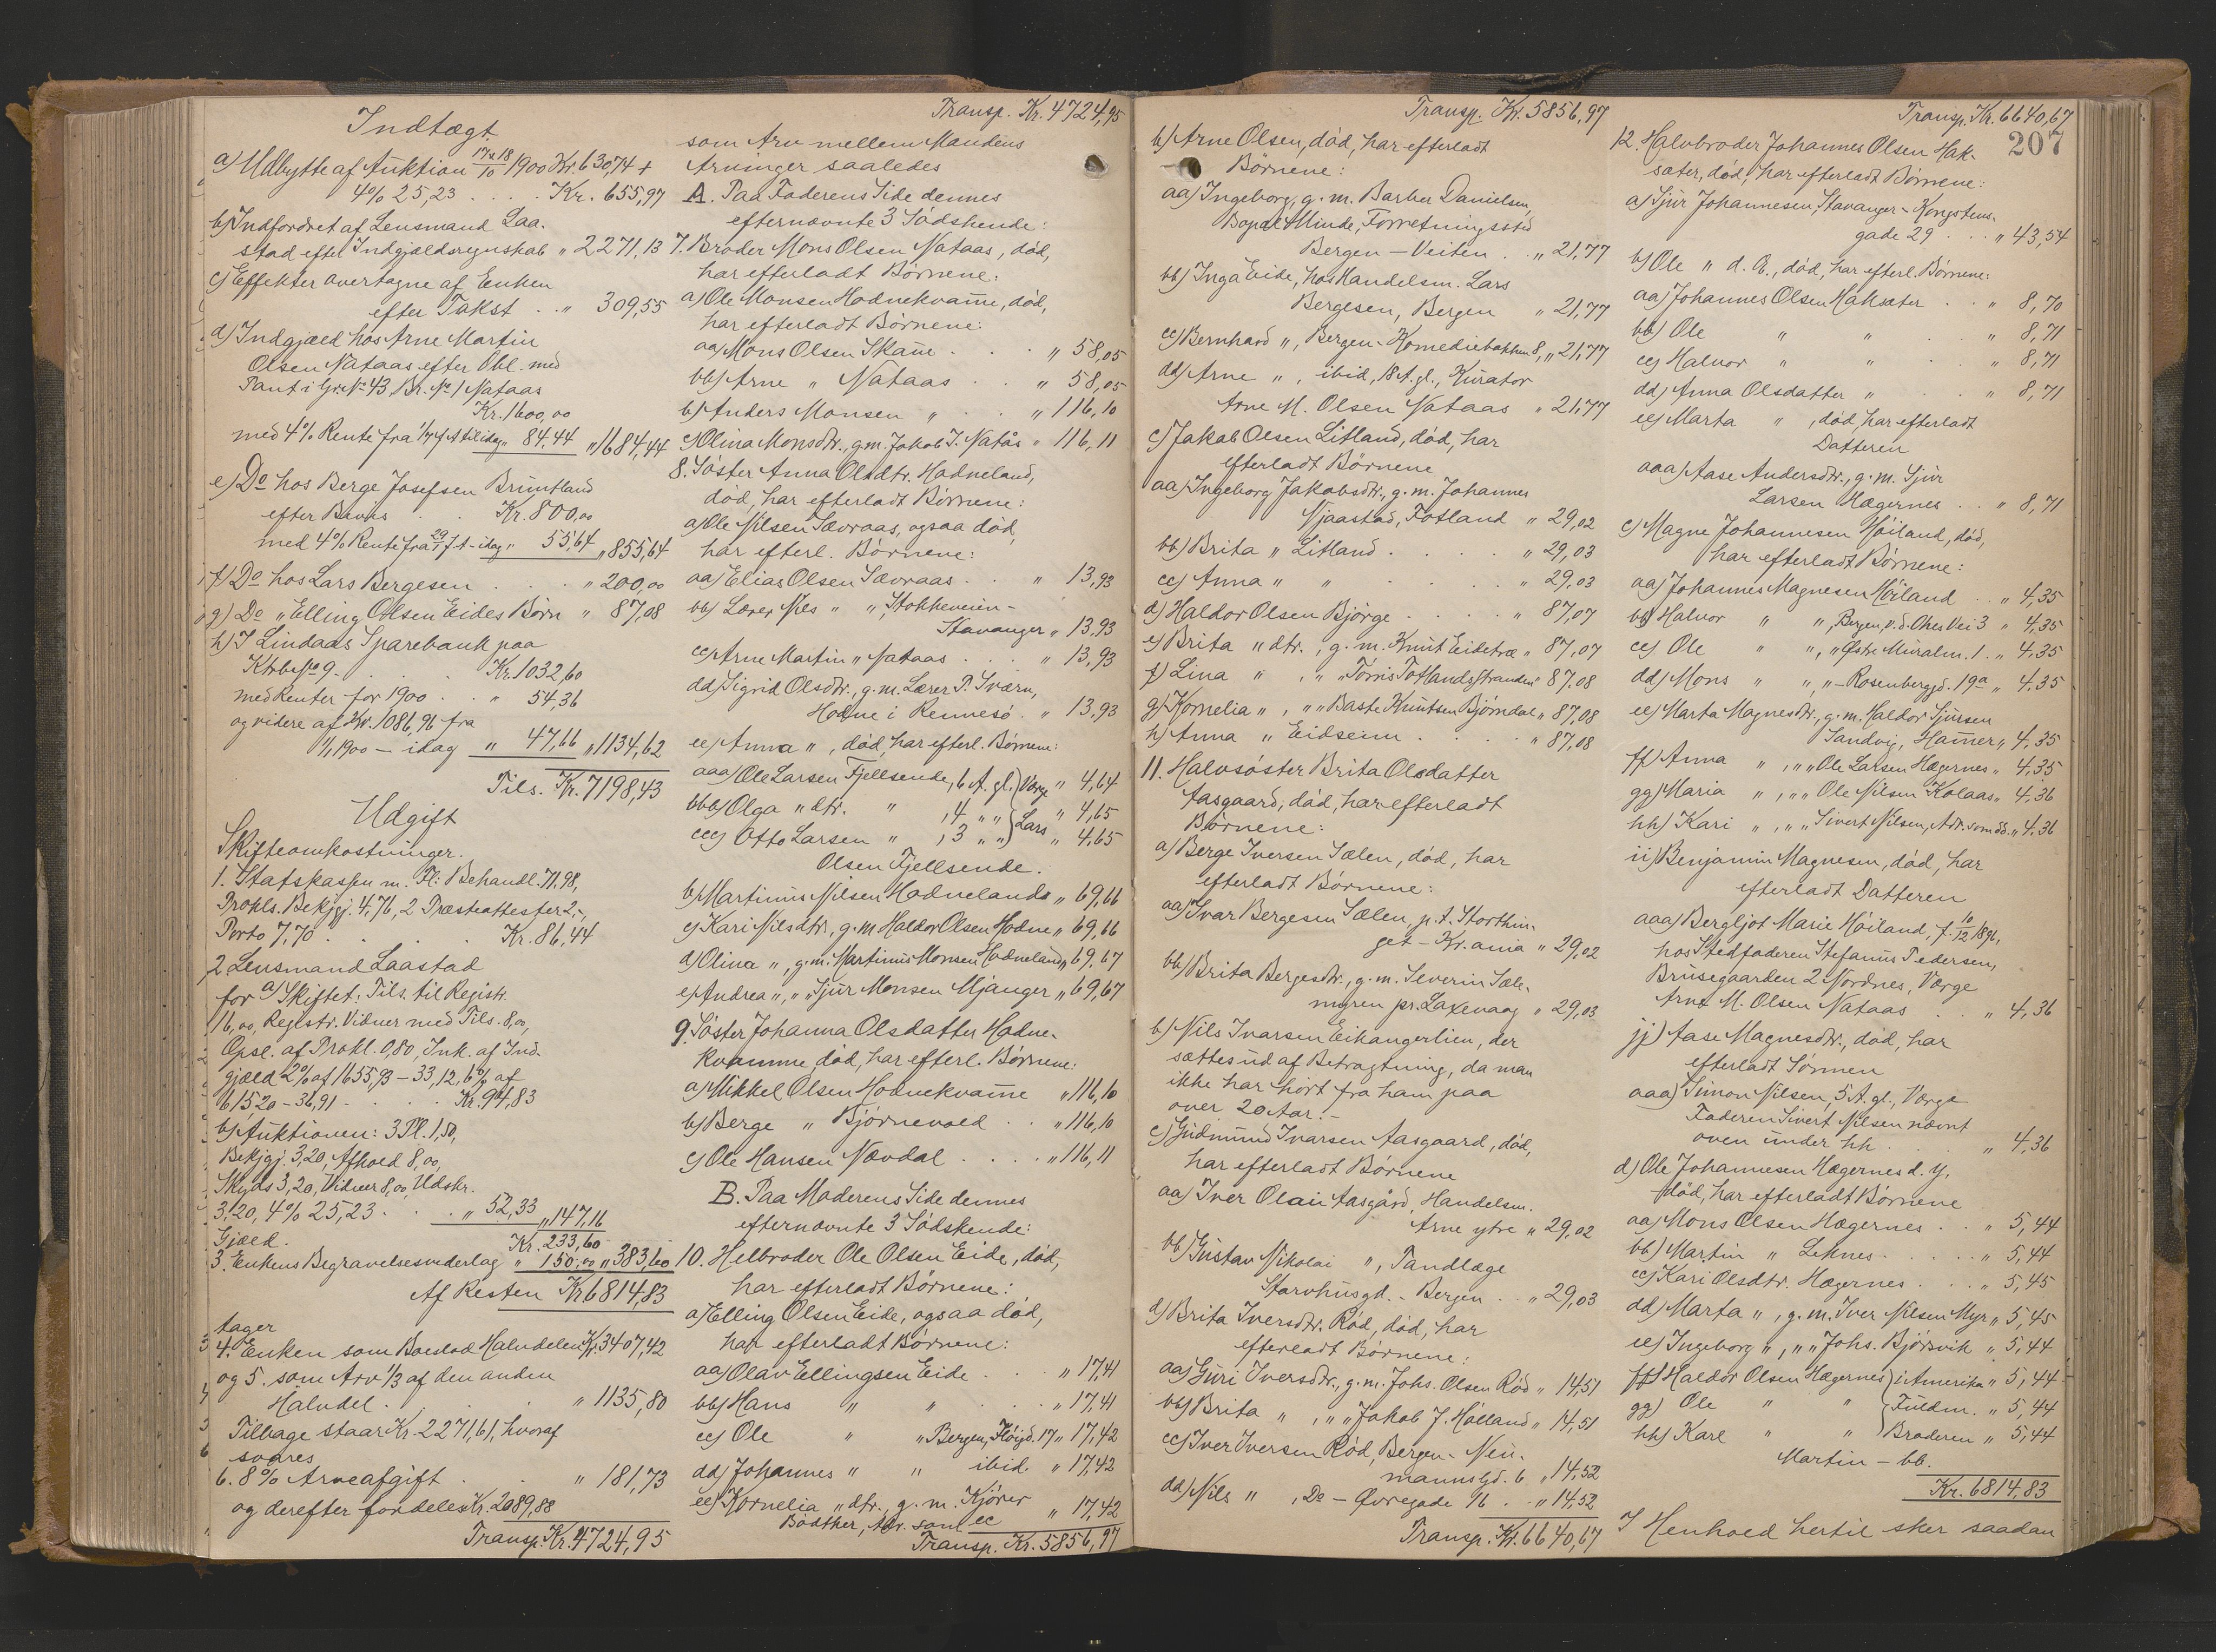 Indtægt
a) Udbytte af Auktion 17 & 18/10 1900 Kr. 630,74 +
4% 25,23 . . . . Kr. 655,97
b) Indfordret af Lensmand Laa-
stad efter Indgjældsregnskab " 2271,13
c) Effekter overtagne af Enken
efter Takst . . " 309,55
d) Indgjæld hos Arne Martin
Olsen Nataas efter Obl. med
Pant i Gr. No 43, Br. No 1 Nataas
Kr. 1600,00
med 4% Rente fra til idag " 84,44 " 1684,44
e) Do hos Berge Josefsen Bruntland
efter Bevis . . Kr. 800,00
med 4% Rente fra 29/1 f. A - idag " 55,64 " 855,64
f) Do hos Lars Bergesen . . . " 200,00
g) Do " Elling Olsen Eides Børn " 87,08
h) I Lindaas Sparebank paa
Ktrb. No 9 . . . Kr. 1032,60
med Renter for 1900 . . " 54,36
og videre af Kr. 1086,96 fra
1/1 1900 - idag " 47,66 " 1134,62
Tils. Kr. 7198,43
Udgift
Skifteomkostninger.
1. Statskassen m. Fl: Behandl. 71,98,
Prokls. Bekjgj. 4,76, 2 Præsteattester 2,-,
Porto 7,70 . . . . Kr. 86,44
2. Lensmand Laastad
for a) Skiftet: Tils. til Registr.
16,00, Registr. Vidner med Tils. 8,00,
Opsl. af Prokl. 0,80, Ink. af Ind-
gjæld 2% af 1655,93 - 33,12, 6% af
615,20 - 36,91 . . . . Kr. 94,83
b) Auktionen: 3 Pl. 1,50,
Bekjgj. 3,20, Afhold 8,00,
Skyds 3,20, Vidner 8,00, Udskr.
3.20, 4% 25,23 . . . " 52,33 " 147,16
Gjæld. Kr. 233,60
3. Enkens Begravelsesvederlag " 150,00 " 383,60
Af Resten Kr. 6814,83
tager
4. Enken som Boeslod Halvdelen Kr. 3407,42
og 5. som Arv 1/3 af den anden
Halvdel . . . . " 1135,80
Tilbage staar Kr. 2271,61, hvoraf
svares
6. 8% Arveafgift . . . " 181,73
og derefter fordeles Kr. 2089,88
Transp. Kr. 4724,95
Transp. Kr. 4724,95
som Arv mellem Mandens
Arvinger saaledes
A. Paa Faderens Side dennes
efternævnte 3 Sødskende:
7. Broder Mons Olsen Nataas, død,
har efterladt Børnene:
a) Ole Monsen Hodnekvamme, død,
har efterladt Børnene:
aa) Mons Olsen Skamme . . . " 58,05
bb) Arne " Nataas . . " 58,05
b) Anders Monsen " . " 116,10
c) Olina Monsdtr., g.m. Jakob J. Natås " 116,11
8. Søster Anna Olsdtr. Hodneland,
død, har efterladt Børnene:
a) Ole Nilsen Sævraas, ogsaa død,
har efterl. Børnene:
aa) Elias Olsen Sævraas . . " 13,93
bb) Lærer Nils " ", Stokkeveien-
Stavanger " 13,93
cc) Arne Martin " Nataas . . . " 13,93
dd) Sigrid Olsdtr., g.m. Lærer P. Sværn,
Hodne i Rennesø . " 13,93
ee) Anna ", død har efterl. Børnene:
aaa) Ole Larsen Fjellsende, 6 A. gl.) Værge " 4,64
bbb) Olga " dtr. " , 4 " " } Lars " 4,65
ccc) Otto Larsen " , 3 " " " 4,65
Olsen Fjellsende.
b) Martinus Nilsen Hodneland " 69,66
c) Kari Nilsdtr., g.m. Haldor Olsen Hodne " 69,66
d) Olina ", g.m. Martinus Monsen Hodneland " 69,67
e) Andrea ", " " Sjur Monsen Mjanger " 69,67
9. Søster Johanna Olsdatter Hodne-
kvamme, død, har efterl. Børnene:
a) Mikkel Olsen Hodnekvamme " 116,10
b) Berge " Bjørnevold . . " 116,10
c) Ole Hansen Nævdal . . . . " 116,11
B. Paa Moderens Side dennes
efternævnte 3 Sødskende:
10. Helbroder Ole Olsen Eide, død,
har efterladt Børnene:
a) Elling Olsen Eide, ogsaa død,
har efterladt Børnene:
aa) Olav Ellingsen Eide . . " 17,41
bb) Hans " " . . " 17,41
cc) Ole " " Bergen, Fløigd. 17 " 17,42
dd) Johannes " " ibid. " 17,42
ee) Kornelia " dtr., g.m. Kjører
Bødtker, Adr. som cc " 17,42
Transp. Kr. 5856,97
Transp. Kr. 5856,97
b) Arne Olsen, død, har efterladt
Børnene:
aa) Ingeborg, g.m. Barber Danielsen,
Bopæl Minde, Forretningssted
Bergen - Veiten . " 21,77
bb) Inga Eide, hos Handelsm. Lars
Bergesen, Bergen " 21,77
cc) Bernhard ", Bergen - Komediebakken 8, " 21,77
dd) Arne ", ibid, 18 A. gl., Kurator
Arne M. Olsen Nataas " 21,77
c) Jakob Olsen Litland, død, har
efterladt Børnene
aa) Ingeborg Jakobsdtr., g.m. Johannes
Mjaastad, Fotland " 29,02
bb) Brita " Litland . . . . " 29,03
cc) Anna " " . . . . " 29,03
d) Haldor Olsen Bjørge . . . . " 87,07
e) Brita " dtr., g.m. Knut Eidetræ " 87,07
f) Lina " , " " Tørris Totlandsstranden " 87,08
g) Kornelia " , " " Baste Knutsen Bjørndal " 87,08
h) Anna " Eidseim . . . . " 87,08
11. Halvsøster Brita Olsdatter
Aasgaard, død, har efterladt
Børnene:
a) Berge Iversen Sælen, død, har
efterladt Børnene:
aa) Ivar Bergesen Sælen, p.t. Storthin-
get - Kr.ania " 29,02
bb) Brita Bergesdtr., g.m. Severin Sæle-
myren pr. Laxevaag " 29,03
b) Nils Ivarsen Eikangerlien, der
sættes ud af Betragtning, da man
ikke har hørt fra ham paa
over 20 Aar. -
c) Gudmund Ivarsen Aasgaard, død,
har efterladt Børnene
aa) Iver Olai Aasgård, Handelsm.
Arne ytre " 29,02
bb) Gustav Nikolai ", Tandlæge
Starvhusgd. - Bergen . . " 29,03
d) Brita Iversdtr. Rød, død, har
efterladt Børnene:
aa) Guri Iversdtr., g.m. Johs. Olsen Rød " 14,51
bb) Brita " , " " Jakob J. Hølland " 14,51
cc) Iver Iversen Rød, Bergen - Neu-
mannsgd. 6 " 14,52
dd) Nils " , Do - Øvregade 16 . . " 14,52
Transp. Kr. 6640,67
Transp. Kr. 6640,67
207
12. Halvbroder Johannes Olsen Hak-
sæter, død, har efterladt Børnene:
a) Sjur Johannesen, Stavanger - Kongstens-
gade 29 . . . " 43,54
b) Ole " d. Æ., død, har efterl. Børnene:
aa) Johannes Olsen Haksæter . . " 8,70
bb) Ole " " . . " 8,71
cc) Halvor " " . " 8,71
dd) Anna Olsdatter " . . " 8,71
ee) Marta " , død, har efterladt
Datteren
aaa) Aase Andersdtr., g.m. Sjur
Larsen Hægernes . . " 8,71
c) Magne Johannesen Høiland, død,
har efterladt Børnene:
aa) Johannes Magnesen Høiland . . " 4,35
bb) Halvor " ", Bergen, v. d. Ohes Vei 3 " 4,35
cc) Ole " ", " Østre Muralm. 1 . " 4,35
dd) Mons " ", " - Rosenberggd. 19a " 4,35
ee) Marta Magnesdtr., g.m. Haldor Sjursen
Sandvig, Hammer " 4,35
ff) Anna " , " " Ole Larsen Hægernes " 4,35
gg) Maria " , " " Ole Nilsen Kolaas " 4,36
hh) Kari " , " " Sivert Nilsen, Adr. som dd. " 4,36
ii) Benjamin Magnesen, død, har
efterladt Datteren
aaa) Bergljot Marie Høiland, f. 10/12 1896,
hos Stedfaderen Stefanus Pedersen,
Brusegaarden 2 Nordnes, Værge
Arne M. Olsen Nataas . . " 4,36
jj) Aase Magnesdtr., død, har
efterladt Sønnen
aaa) Simon Nilsen, 5 A. gl., Værge
Faderen Sivert Nilsen nævnt
oven under hh . . . . " 4,36
d) Ole Johannesen Hægernes d. y.,
død, har efterladt Børnene
aa) Mons Olsen Hægernes . . " 5,44
bb) Martin " Leknes . . . . . " 5,44
cc) Kari Olsdtr. Hægernes . . . " 5,45
dd) Marta " , g.m. Iver Nilsen Myr " 5,45
ee) Ingeborg " , " " Johs. Bjørsvik " 5,44
fff) Haldor Olsen Hægernes } i Amerika " 5,44
gg) Ole " " Fuldm. " 5,44
hh) Karl " " Broderen " 5,44
Martin - bb.
Kr. 6814,83
I Henhold hertil sker saadan